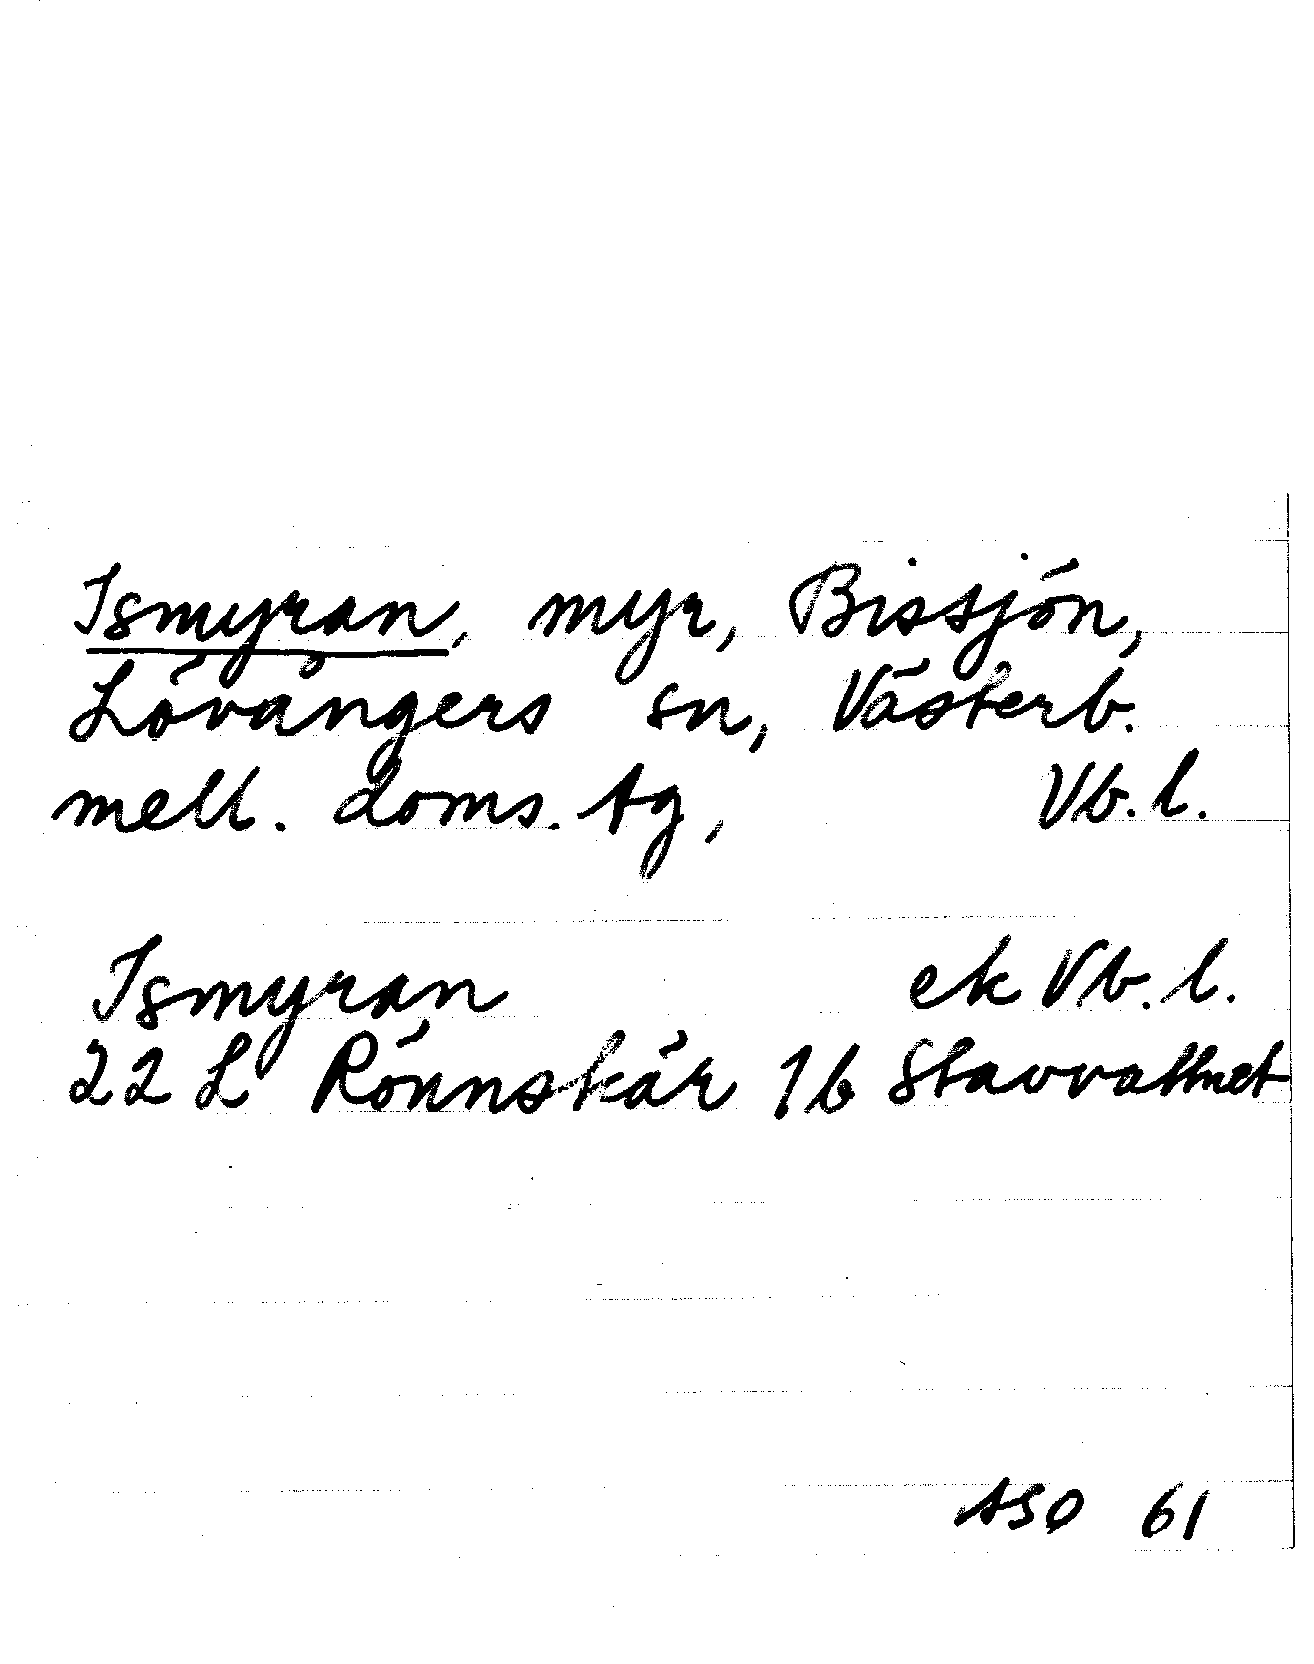 Ismyran, myr, Bissjön,
Lövångers sn, Västerb.
mell. doms. tg, Vb. l.
Ismyran ek Vb. l.
22 L Rönnskär 1b Stavvattnet
ASO 61